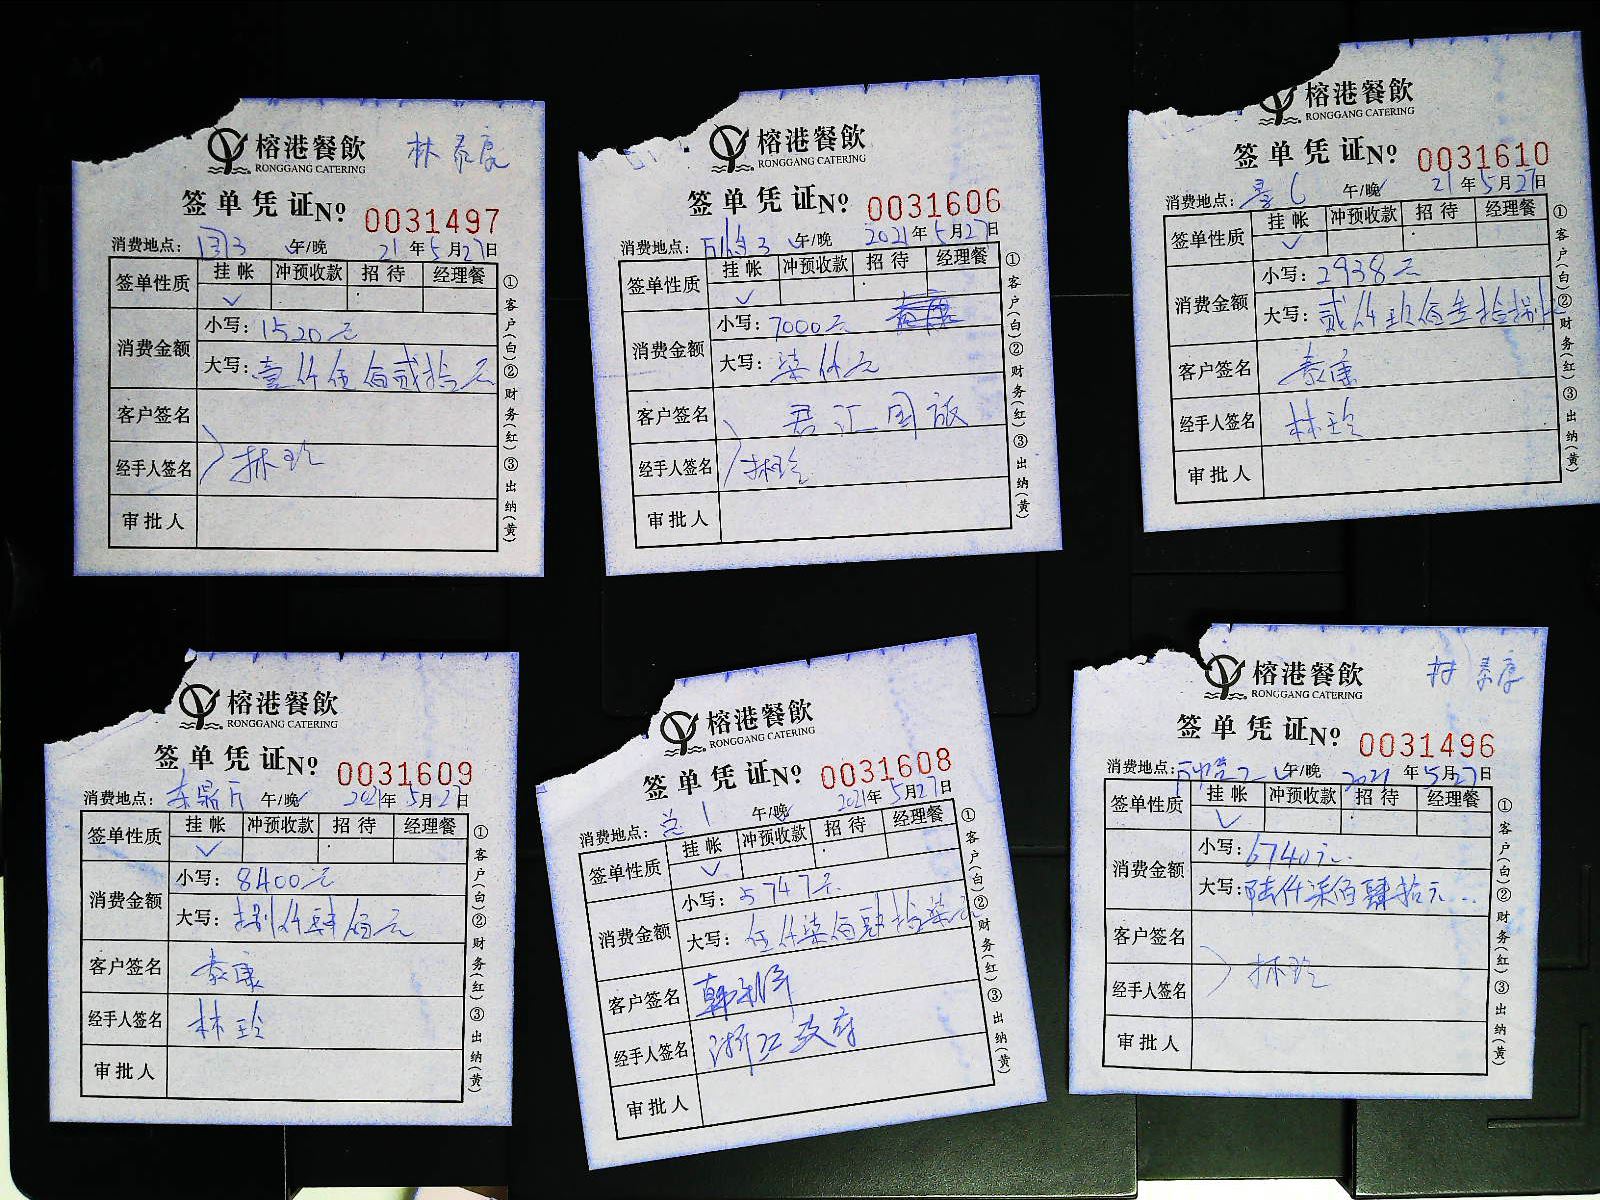 榕港餐飲
RONGGANG CATERING
林 泰康
签单凭证 Nº 0031497
消费地点: 国3 午/晚 21年5月27日
签单性质 挂帐 冲预收款 招待 经理餐
✓
消费金额 小写: 1520元
大写: 壹仟伍佰贰拾元
客户签名
经手人签名 林玲
审批人
①客户(白)②财务(红)③出纳(黄)
榕港餐飲
RONGGANG CATERING
签单凭证 Nº 0031606
消费地点: 3 午/晚 2021年5月27日
签单性质 挂帐 冲预收款 招待 经理餐
✓
消费金额 小写: 7000元
大写: 柒仟元
客户签名 君汇国旅
经手人签名 林玲
审批人
①客户(白)②财务(红)③出纳(黄)
榕港餐飲
RONGGANG CATERING
签单凭证 Nº 0031610
消费地点: 午/晚 21年5月27日
签单性质 挂帐 冲预收款 招待 经理餐
✓
消费金额 小写: 2938元
大写: 贰仟玖佰叁拾捌
客户签名 泰康
经手人签名 林玲
审批人
①客户(白)②财务(红)③出纳(黄)
榕港餐飲
RONGGANG CATERING
签单凭证 Nº 0031609
消费地点: 午/晚 2021年5月27日
签单性质 挂帐 冲预收款 招待 经理餐
✓
消费金额 小写: 8400元
大写: 捌仟肆佰元
客户签名 泰康
经手人签名 林玲
审批人
①客户(白)②财务(红)③出纳(黄)
榕港餐飲
RONGGANG CATERING
签单凭证 Nº 0031608
消费地点: 1 午/晚 2021年5月27日
签单性质 挂帐 冲预收款 招待 经理餐
✓
消费金额 小写: 5747元
大写: 伍仟柒佰肆拾柒元
客户签名
经手人签名 浙江政府
审批人
①客户(白)②财务(红)③出纳(黄)
榕港餐飲
RONGGANG CATERING
林 泰康
签单凭证 Nº 0031496
消费地点: 午/晚 2021年5月27日
签单性质 挂帐 冲预收款 招待 经理餐
✓
消费金额 小写: 6740元
大写: 陆仟柒佰肆拾元
客户签名
经手人签名 林玲
审批人
①客户(白)②财务(红)③出纳(黄)